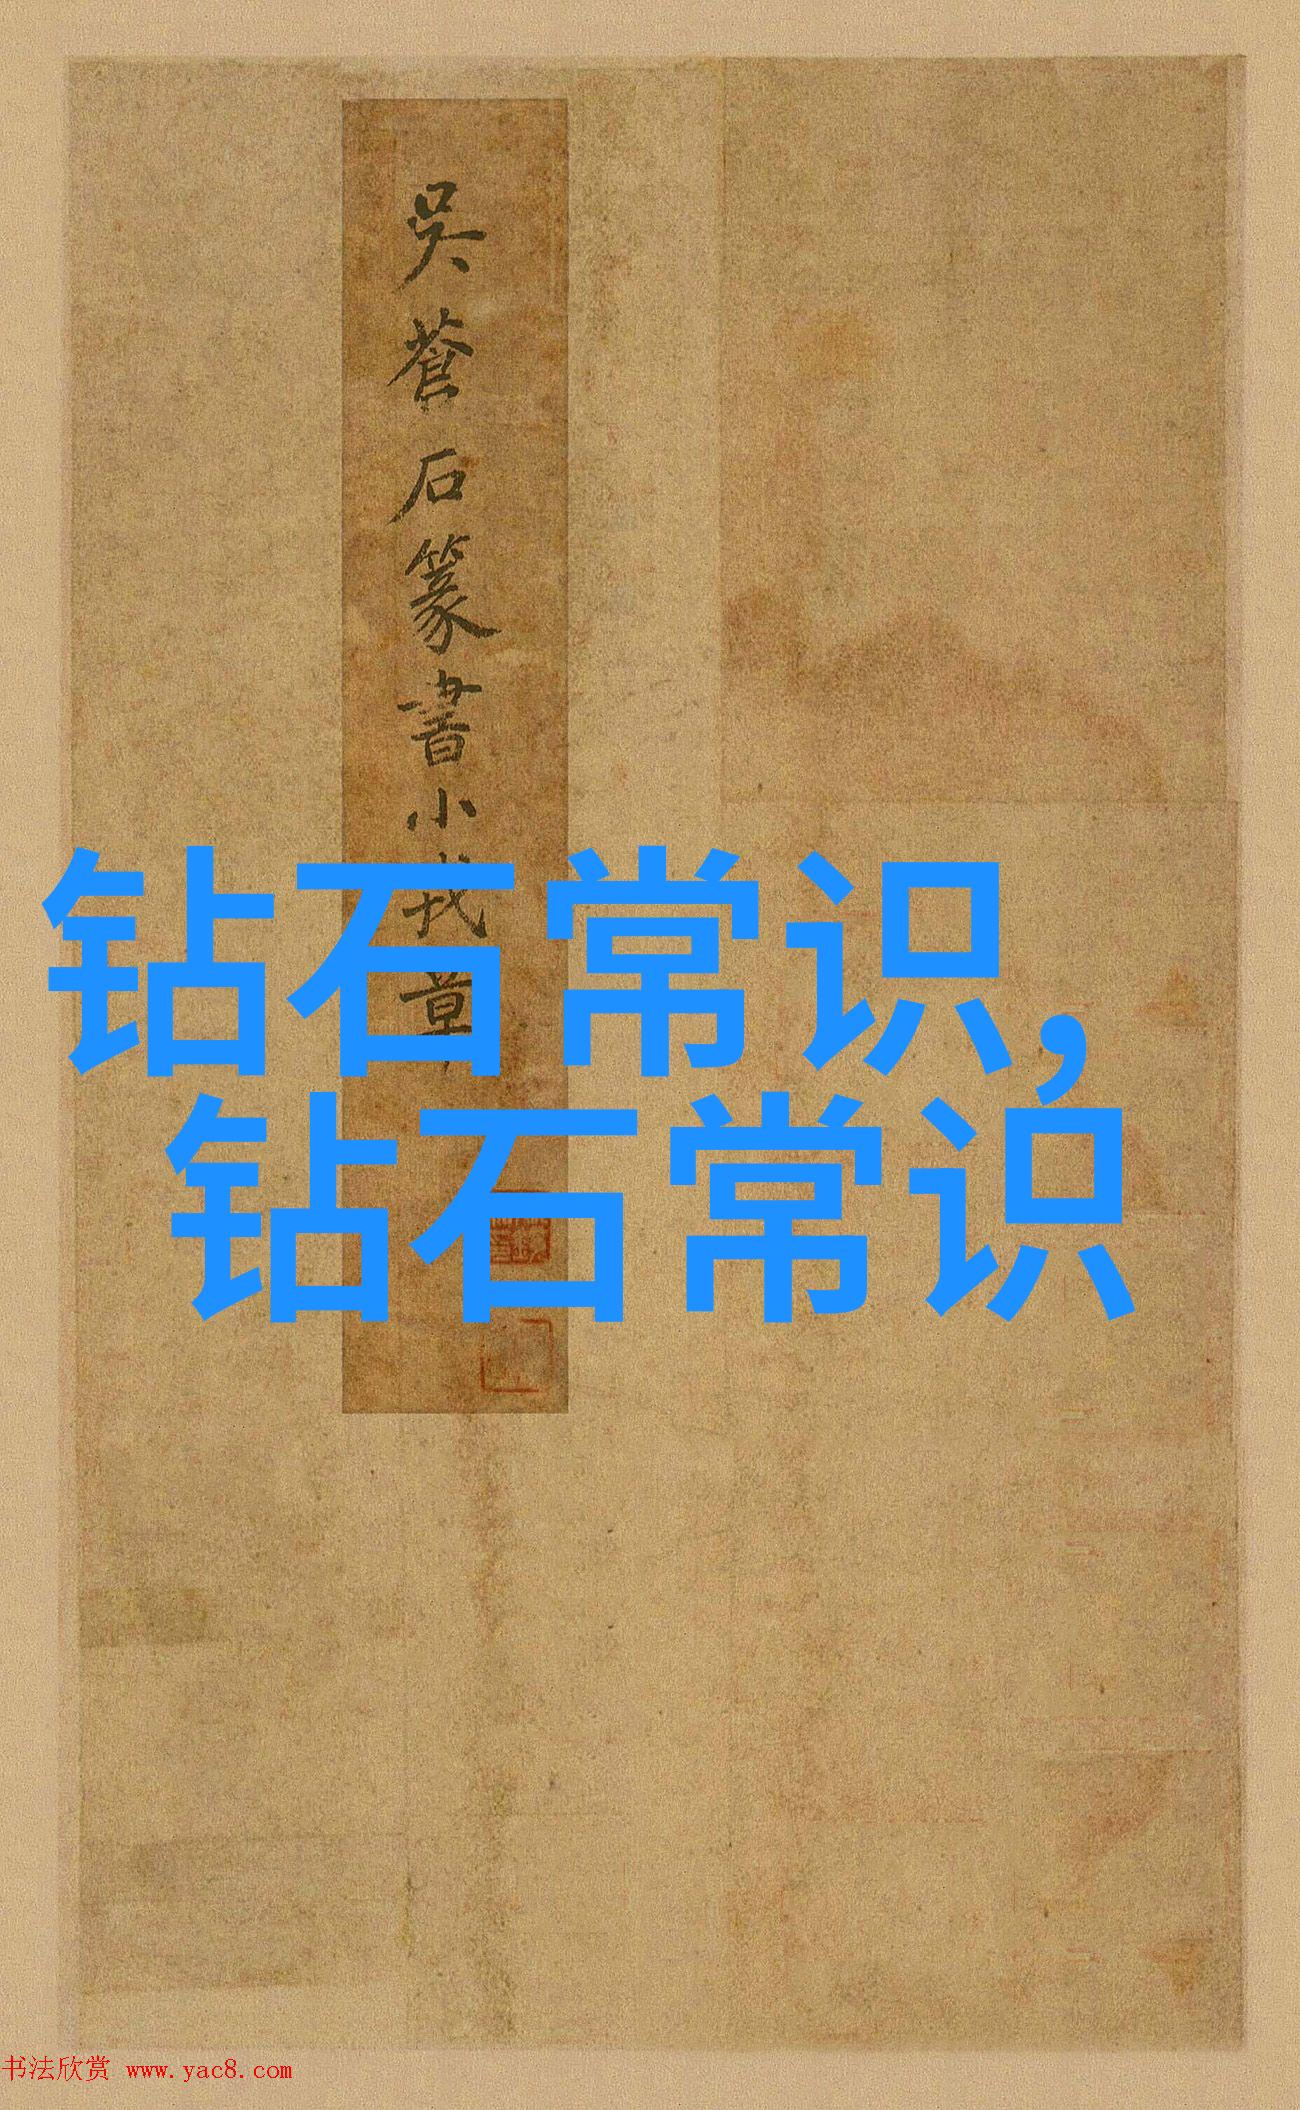 吳蒼石篆書小戎章
钻石常识,
钻石常识
书法欣赏 www.yac8.com